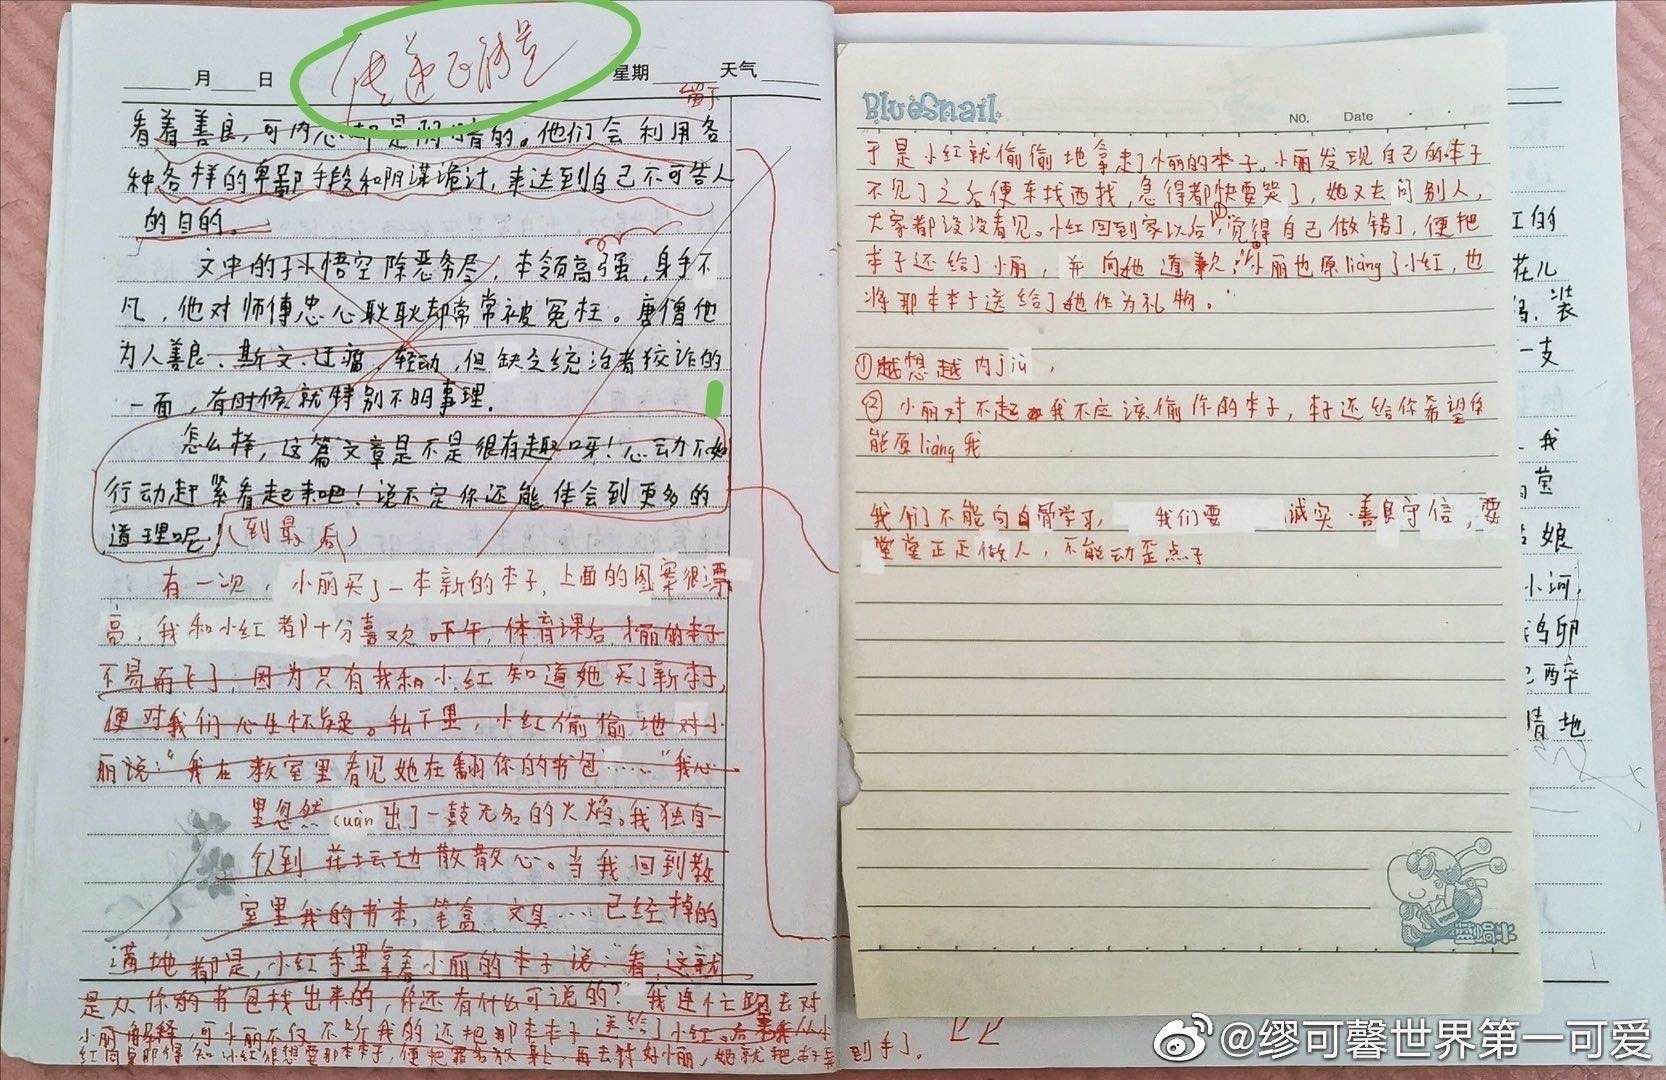 传递正能量
月 日 星期 天气
留下
看着善良，可内心却是阴暗的。他们会利用各
种各样的卑鄙手段和阴谋诡计，来达到自己不可告人
的目的。
文中的孙悟空除恶务尽，本领高强，身手不
凡，他对师傅忠心耿耿却常常被冤枉。唐僧他
为人善良、斯文、迂腐、轻动，但缺乏统治者狡诈的
一面，有时候就特别不明事理。
怎么样，这篇文章是不是很有趣呀！心动不如
行动赶紧看起来吧！说不定你还能体会到更多的
道理呢！（到最后）
有一次，小丽买了一本新的本子，上面的图案很漂
亮，我和小红都十分喜欢 下午，体育课后，小丽的本子
不易而飞了，因为只有我和小红知道她买了新本子，
便对我们心生怀疑。私下里，小红偷偷地对小
丽说：“我在教室里看见她在翻你的书包……”我心
里忽然cuàn出了一鼓无名的火焰。我独自一
人到花坛边散散心。当我回到教
室里我的书本，笔盒，文具……已经掉的
满地都是，小红手里拿着小丽的本子说：“看，这就
是从你的书包找出来的，你还有什么可说的？”我连忙跑去对
小丽解释，可小丽不仅不听我的还把那本本子送给了小红。后来我从小
红同桌那得知小红很想要那本本子，便把罪名放身上，再去讨好小丽，她就把本子拿到手了。
BlueSnail
No. Date
于是小红就偷偷地拿走了小丽的本子。小丽发现自己的本子
不见了之后便东找西找，急得都快要哭了，她又去问别人，
大家都说没看见。小红回到家以后①，觉得自己做错了，便把
本子还给了小丽，并向她道歉：“②”小丽也原liàng了小红，也
将那本本子送给了她作为礼物。
①越想越内jiù，
②小丽对不起我不应该偷你的本子，本子还给你希望你
能原liàng我
我们不能向白骨学习，我们要 诚实 善良守信，要
堂堂正正做人，不能动歪点子
蓝蜗牛
红的
花儿
妈，装
一支
我
萤
姑娘
小河，
鸟卵
已醉
情地
@缪可馨世界第一可爱